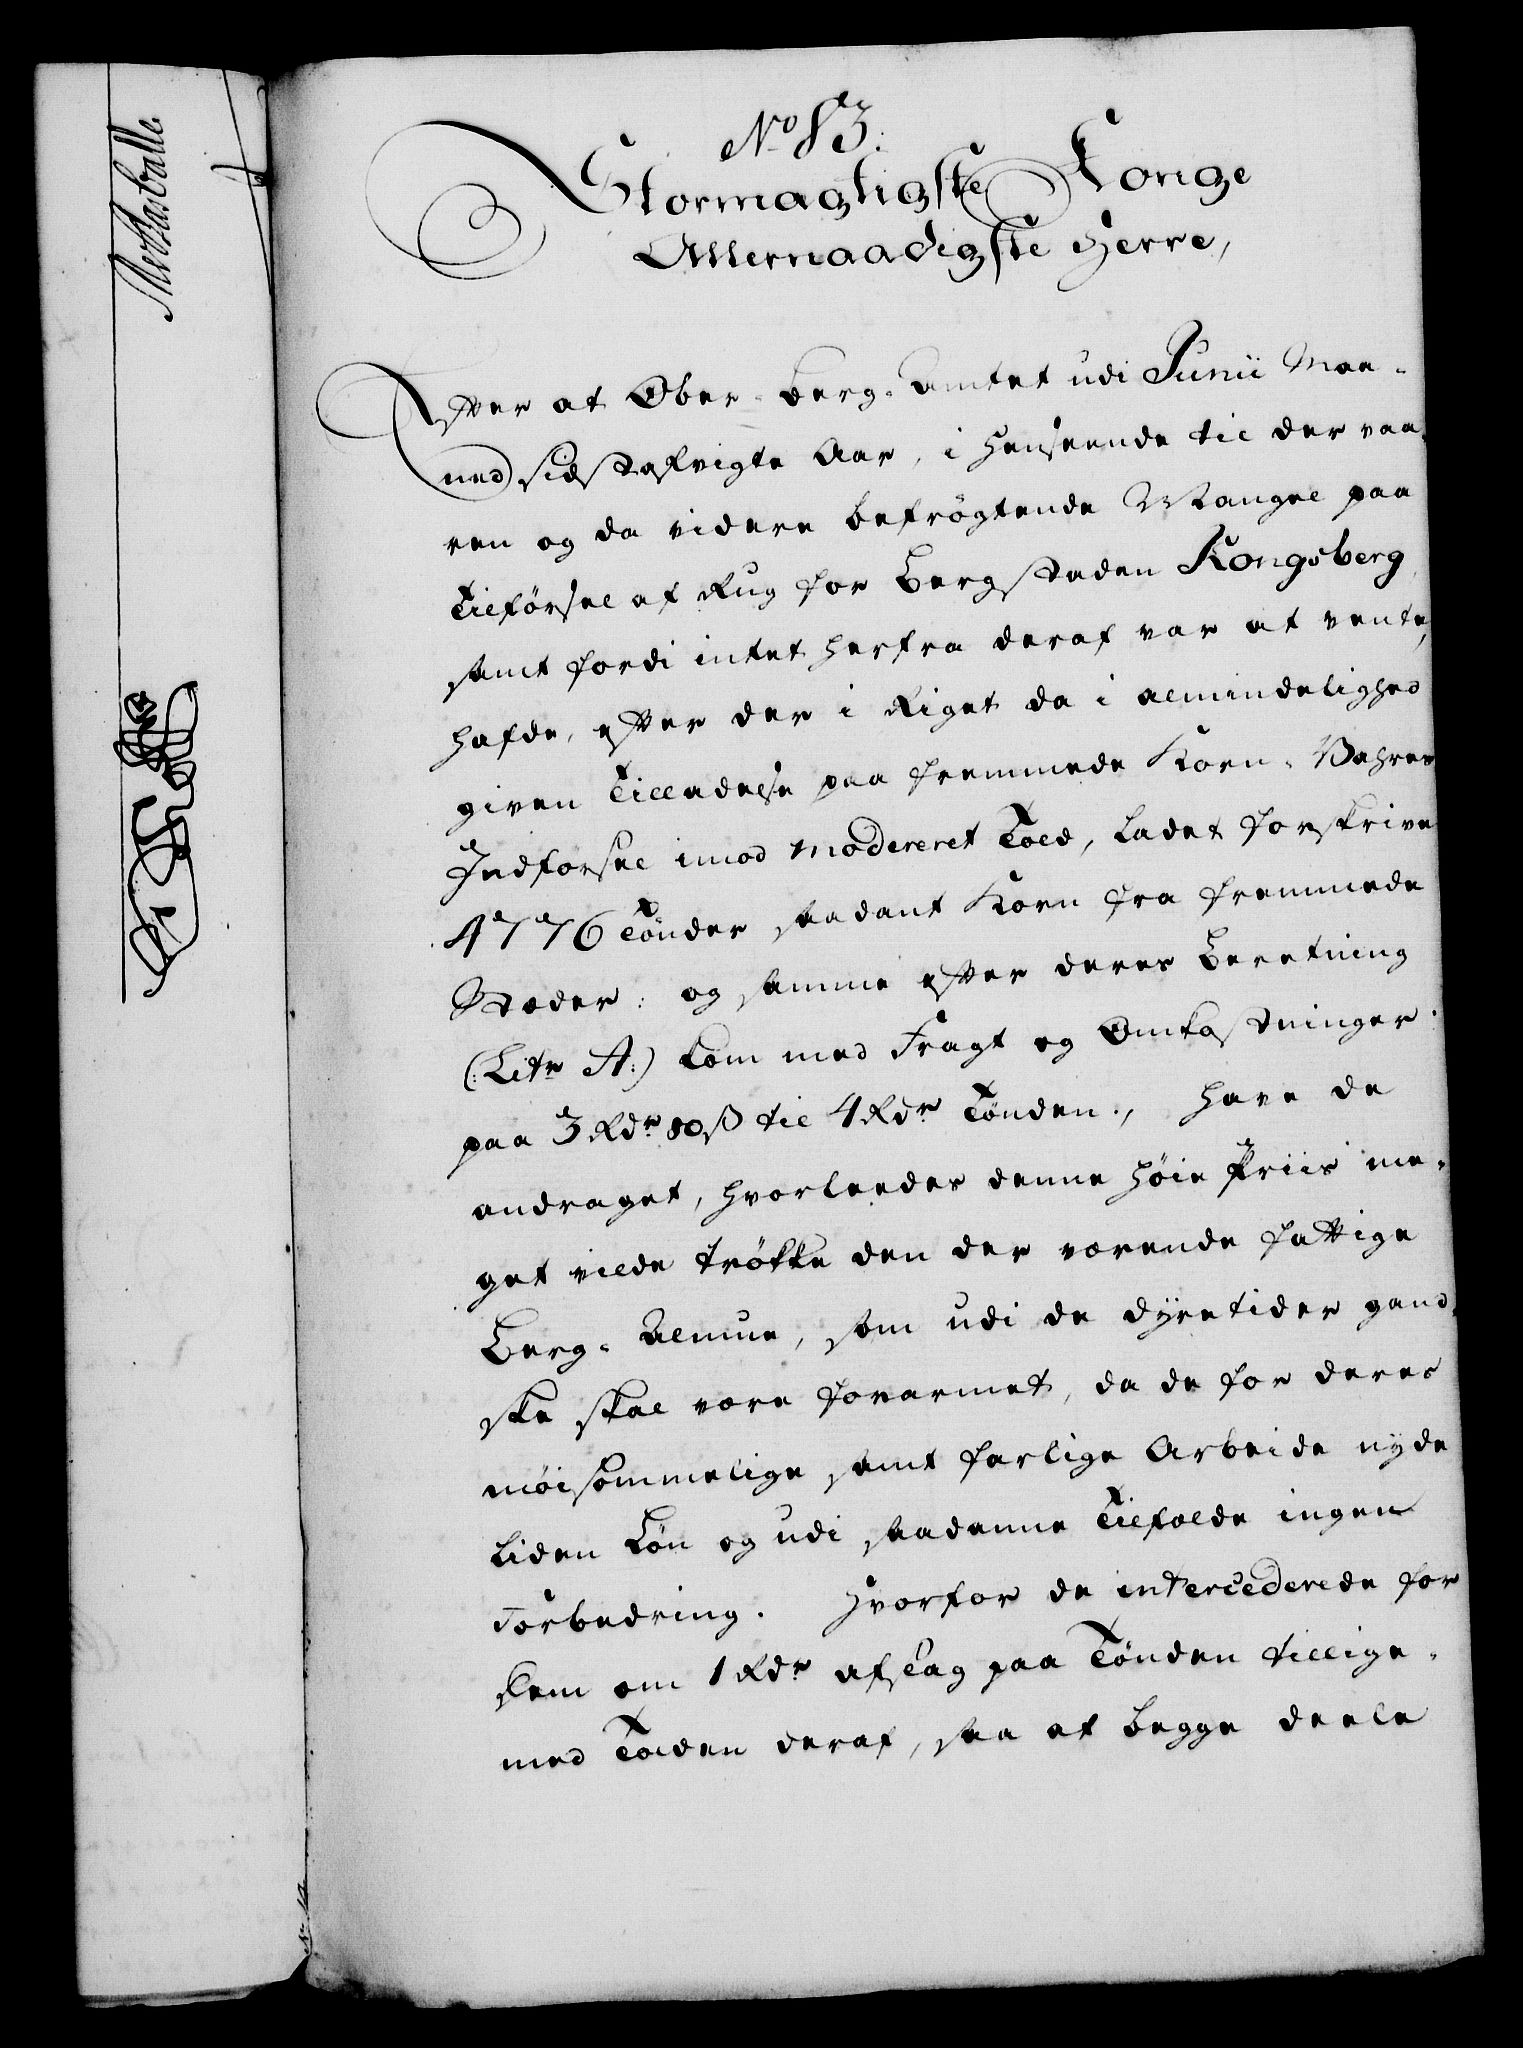 No 83.
Stormagtigste Konge
Allernaadigste Herre,
Efter at Ober-Berg-Amtet udi Junii Maa-
ned sidstafvigte Aar, i Henseende til der vaa-
ren og da videre befrögtende Mangel paa
Tilförsel af Rug for Bergstaden Kongsberg,
samt fordi intet herfra deraf var at vente,
hafde, efter der i Riget da i almindelighed
given Tilladelse paa fremmede Korn-Vahrer
Indførsel imod modereret Told, ladet forskrive
4776 Tönder saadant Korn fra fremmede
Stæder: og samme efter deres Beretning
(:Litr A:) kom med Fragt og Omkostninger
paa 3 Rdr 80 ß til 4 Rdr Tönden., have de
andraget, hvorledes denne höie Priis me-
get vilde trökke den der værende fattige
Berg-Almue, som udi de dyretider gand-
ske skal være forarmet, da de for deres
möisommelige samt farlige Arbeide nyde
liden Lön og udi saadanne Tilfælde ingen
Forbedring. Hvorfor de intercederede for
dem om 1 Rdr afslag paa Tönden tillige-
med Tolden deraf, saa at begge deele